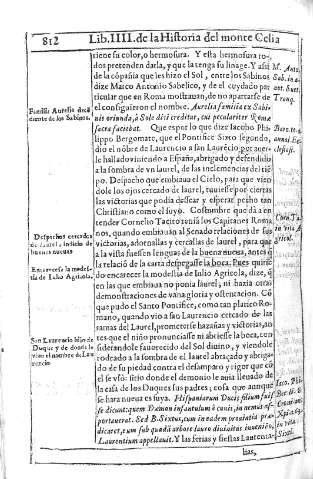 812 Lib. IIII. de la Historia del monte Celia
tiene su color, o hermosura. Y esta hermosura to-
dos pretenden darla, y que la tenga su linage. Y assi
de la cõpañia que les hizo el Sol, entre los Sabinos
dize Marco Antonio Sabelico, y de el cuydado par
ticular que en Roma mostrauan, de no apartarse de
el configuieron el nombre. Aurelia familia ex Sabi-
nis oriunda, à Sole dici creditur, cui peculariter Romæ
sacra faciebat. Que es por lo que dize Iacobo Phi-
lippo Bergomate, que el Pontifice Sixto segundo,
dio el nõbre de Laurencio a san Laurẽcio, por auer
le hallado viniendo a España, abrigado y defendido
a la sombra de vn laurel, de las inclemencias del tiẽ
po. Despacho que embiaua el Cielo, para que vien
dole los ojos cercado de laurel, tuuiesse por ciertas
las victorias que podia dessear y esperar pecho tan
Christiano como el suyo. Costumbre que dà a en
tender Cornelio Tacito tenia los Capitanes Roma
nos, quando embiauan al Senado relaciones de sus
victorias, adornallas y cercallas de laurel, para que
a la vista fuessen lenguas de la buena nueua, antes q̃
la relació de la carta despegasse la boca. Pues quiriẽ
do encarecer la modestia de Iulio Agricola, dize, q̃
en las que embiaua no ponia laurel, ni hazia otras
demonstraciones de vana gloria y ostentacion. Có
que pudo el Santo Pontifice, como tan platico Ro-
mano, quando vio a san Laurencio cercado de las
ramas del Laurel, prometerse hazañas y victorias, an
tes que el niño pronunciasse ni abriesse la boca, con
siderandole fauorecido del Sol diuino, y viendole
rodeado a la sombra de el laurel abraçado y abriga-
do de su piedad contra el desamparo y rigor que cõ
el se vsò: sitio donde el demonio le auia lleuado de
la casa de los Duques sus padres; cosa que aunque
se hara nueua es suya. Hispaniarum Ducis filium fuis
se dicunt: quem Dæmon infantulum è cunis, in nemus as-
portauerat. Sed B. Sixtus, cum in eadem prouintia præ-
dicaret, cum sub quadã arbore lauro diuinitus inuenisset,
Laurentium appellauit. Y las ferias y fiestas Laurenta-
lias,
Familia Aurelia deci
diente de los Sabinos.
Despachos cercados
de laurel, indicio de
buenas nueuas
Encarecese la modes-
tia de Iulio Agricola.
San Laurencio hijo de
Duque y de donde le
vino el nombre de Lau
rencio
M. Anto.
Sab. in
Tranq.